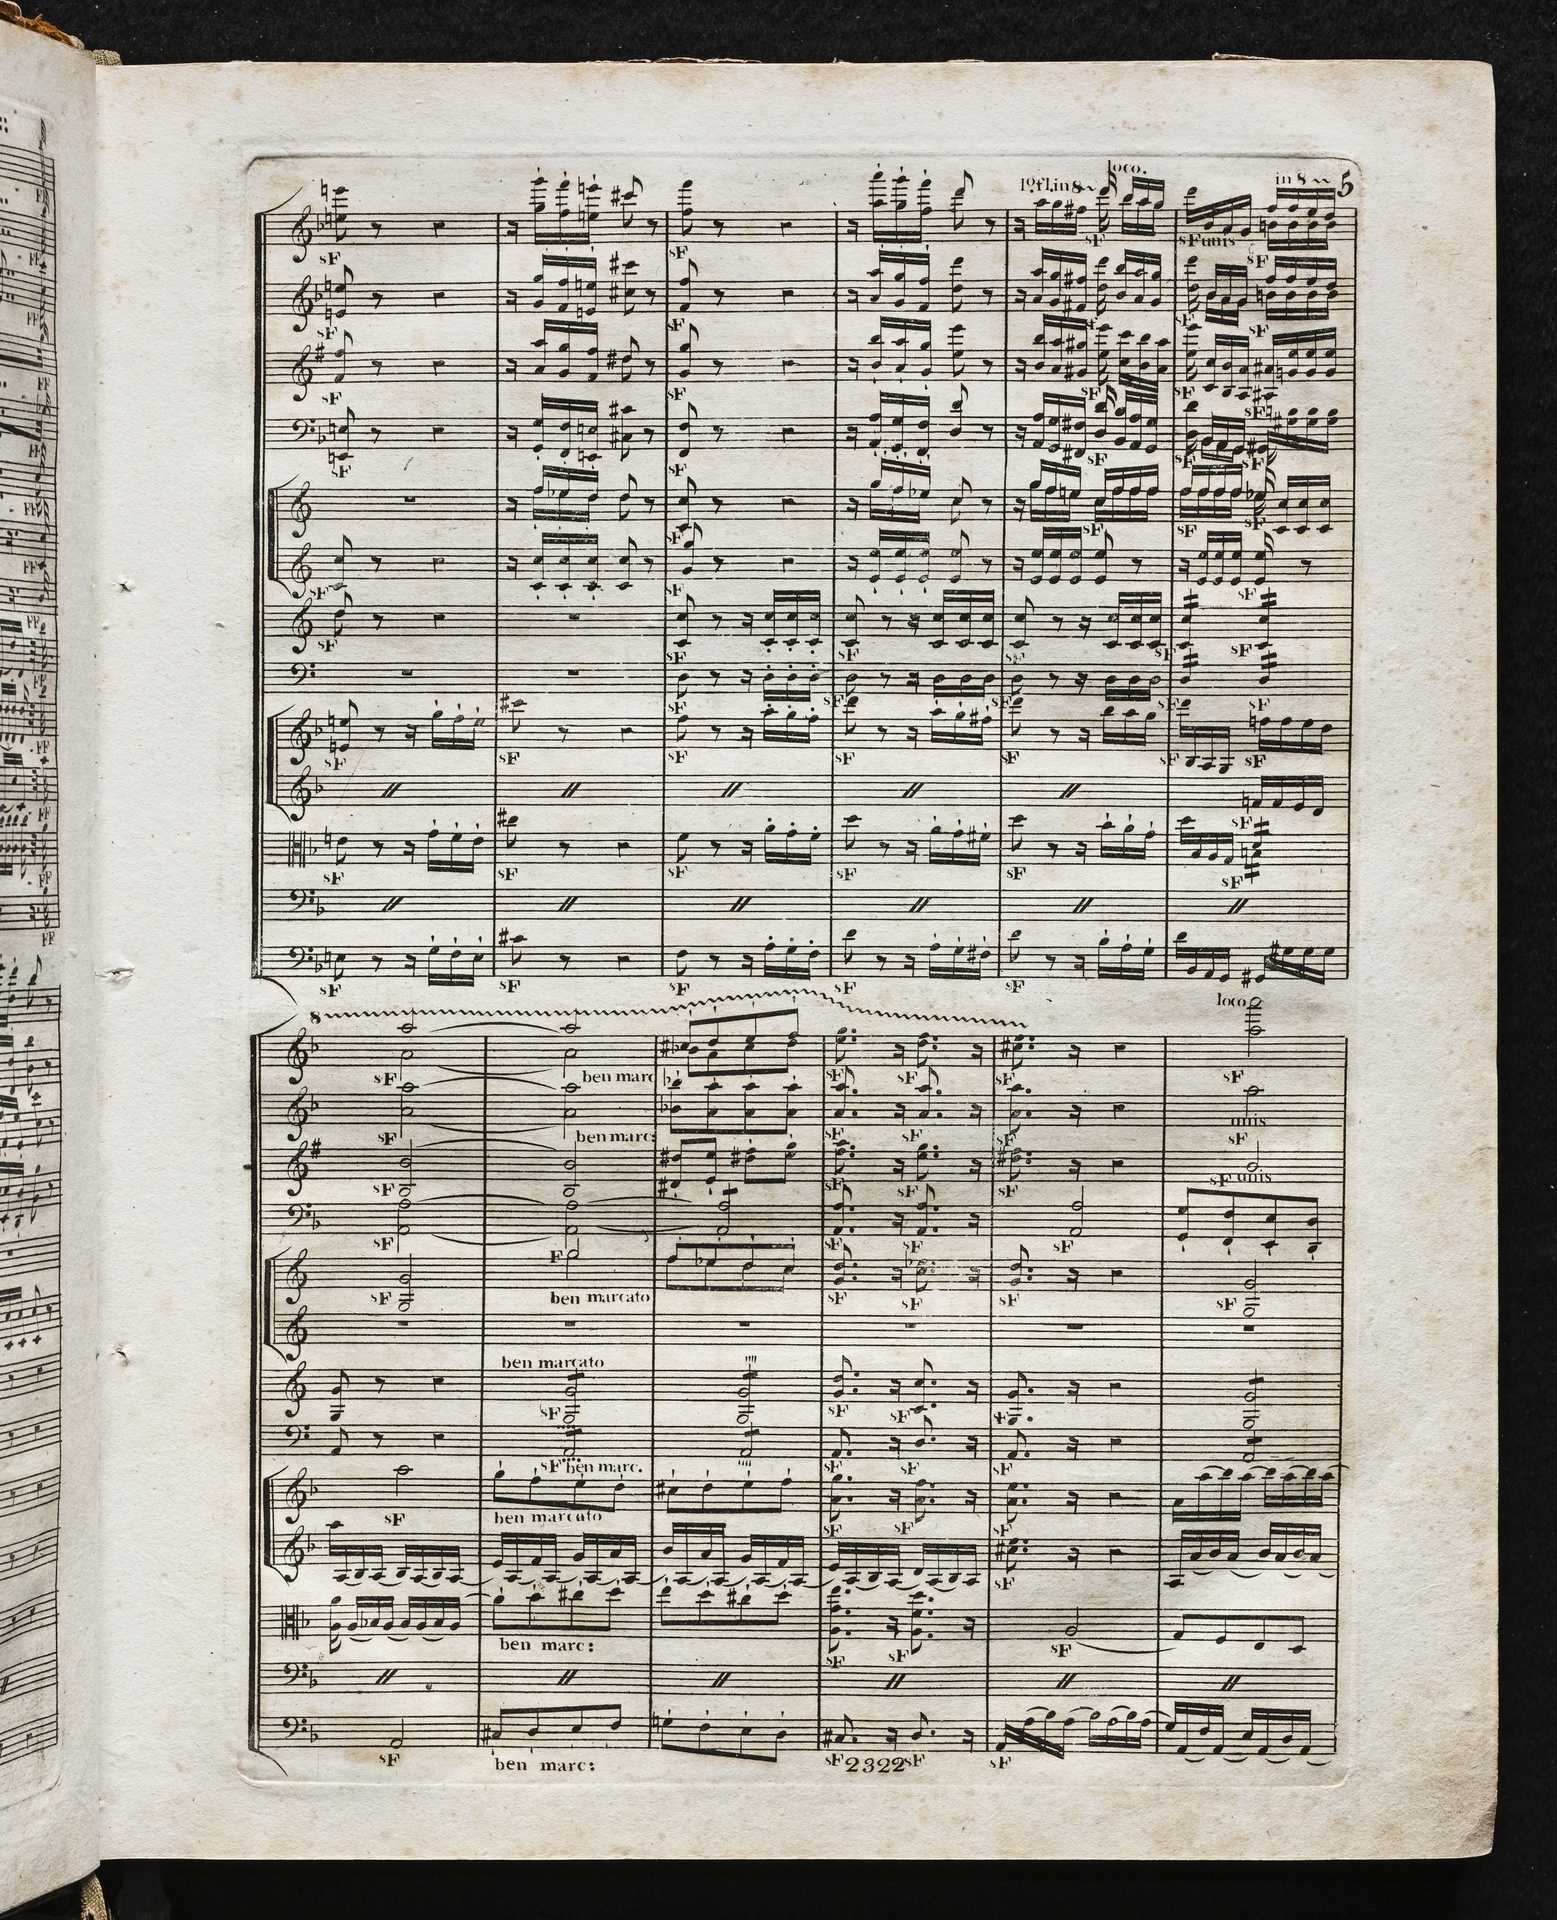 loco.
1º fl. in 8 in 8 5
sF sF unis sF
sF sF sF
sF sF sF
sF sF sF sF sF
sF sF sF sF
sF sF sF
sF sF sF sF sF sF
sF sF sF sF sF sF
sF sF
sF sF sF sF sF sF
sF sF sF sF sF
8 loco
sF ben marc sF sF sF sF
sF ben marc: sF sF sF unis sF
sF sF sF sF sF unis
sF F sF sF sF
sF ben marcato sF sF sF sF
ben marcato
sF sF sF sF
sF ben marc. sF sF
sF ben marcato sF sF sF
sF
ben marc: sF sF sF
sF ben marc: sF 2322 sF sF
FF
FF
FF
FF
FF
FF
FF
FF
FF
FF
FF